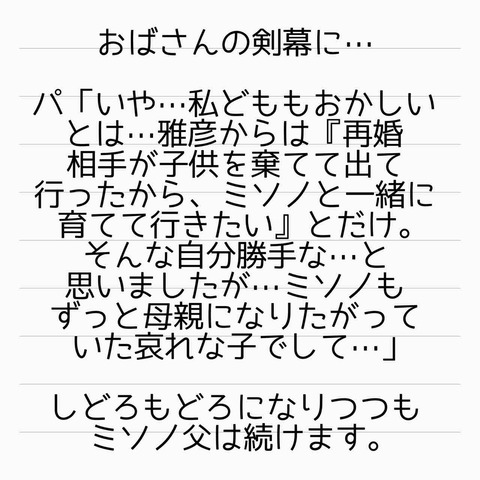 おばさんの剣幕に…
パ「いや…私どももおかしい
とは…雅彦からは『再婚
相手が子供を棄てて出て
行ったから、ミソノと一緒に
育てて行きたい』とだけ。
そんな自分勝手な…と
思いましたが…ミソノも
ずっと母親になりたがって
いた哀れな子でして…」
しどろもどろになりつつも
ミソノ父は続けます。